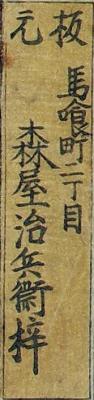 板元
馬喰町二丁目
森屋治兵衛梓